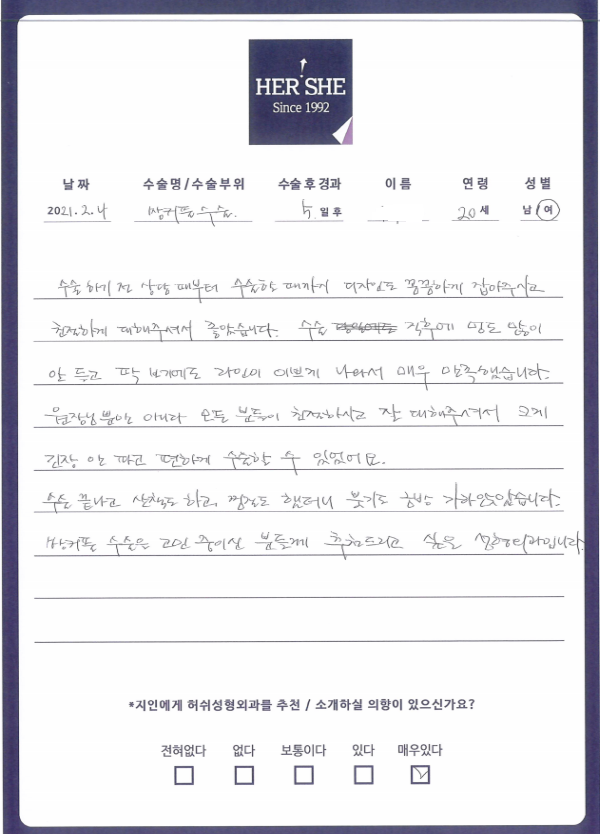 HER SHE
Since 1992
날짜 수술명/수술부위 수술 후 경과 이름 연령 성별
2021.2.4 쌍커풀 수술. 5일 후 20세 남/여
수술 하기 전 상담 때부터 수술할 때까지 디자인도 꼼꼼하게 잡아주시고
친절하게 대해주셔서 좋았습니다. 수술 직후에 멍도 많이
안 들고 딱 보기에도 라인이 이쁘게 나와서 매우 만족했습니다.
원장님 뿐만 아니라 모든 분들이 친절하시고 잘 대해주셔서 크게
긴장 안 하고 편하게 수술할 수 있었어요.
수술 끝나고 산책도 하고, 찜질도 했더니 붓기도 금방 가라앉았습니다.
쌍커풀 수술을 고민 중이신 분들께 추천드리고 싶은 성형외과입니다.
*지인에게 허쉬성형외과를 추천 / 소개하실 의향이 있으신가요?
전혀없다 없다 보통이다 있다 매우있다